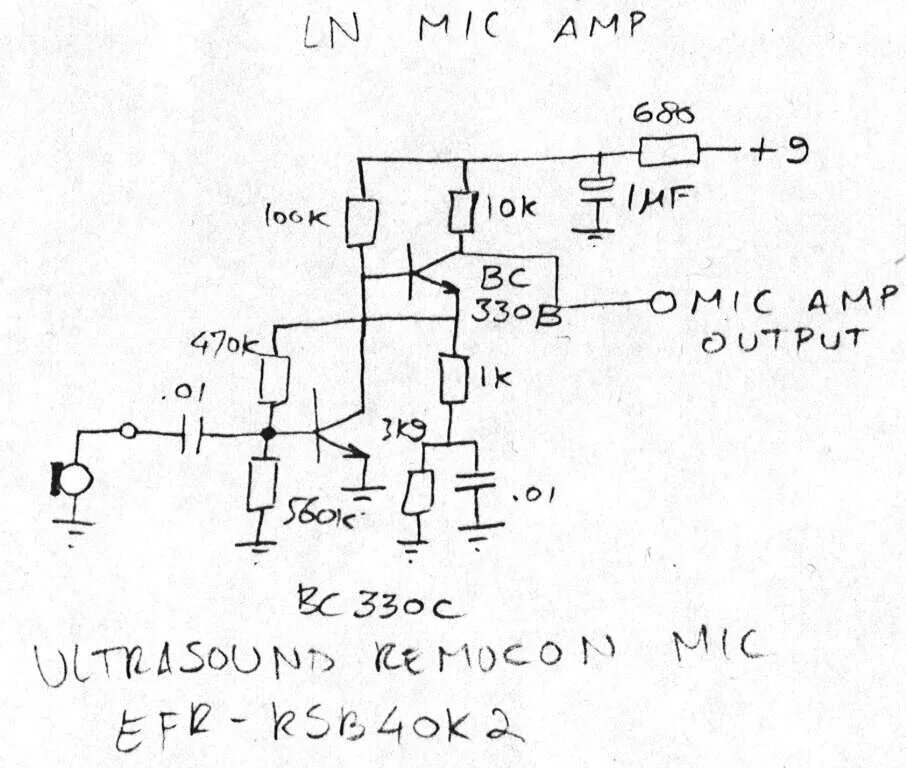 LN MIC AMP
680
+9
100K
10K
1MF
BC
330B
MIC AMP
OUTPUT
470K
1K
.01
3K9
560K
.01
BC330C
ULTRASOUND REMOCON MIC
EFR-RSB40K2